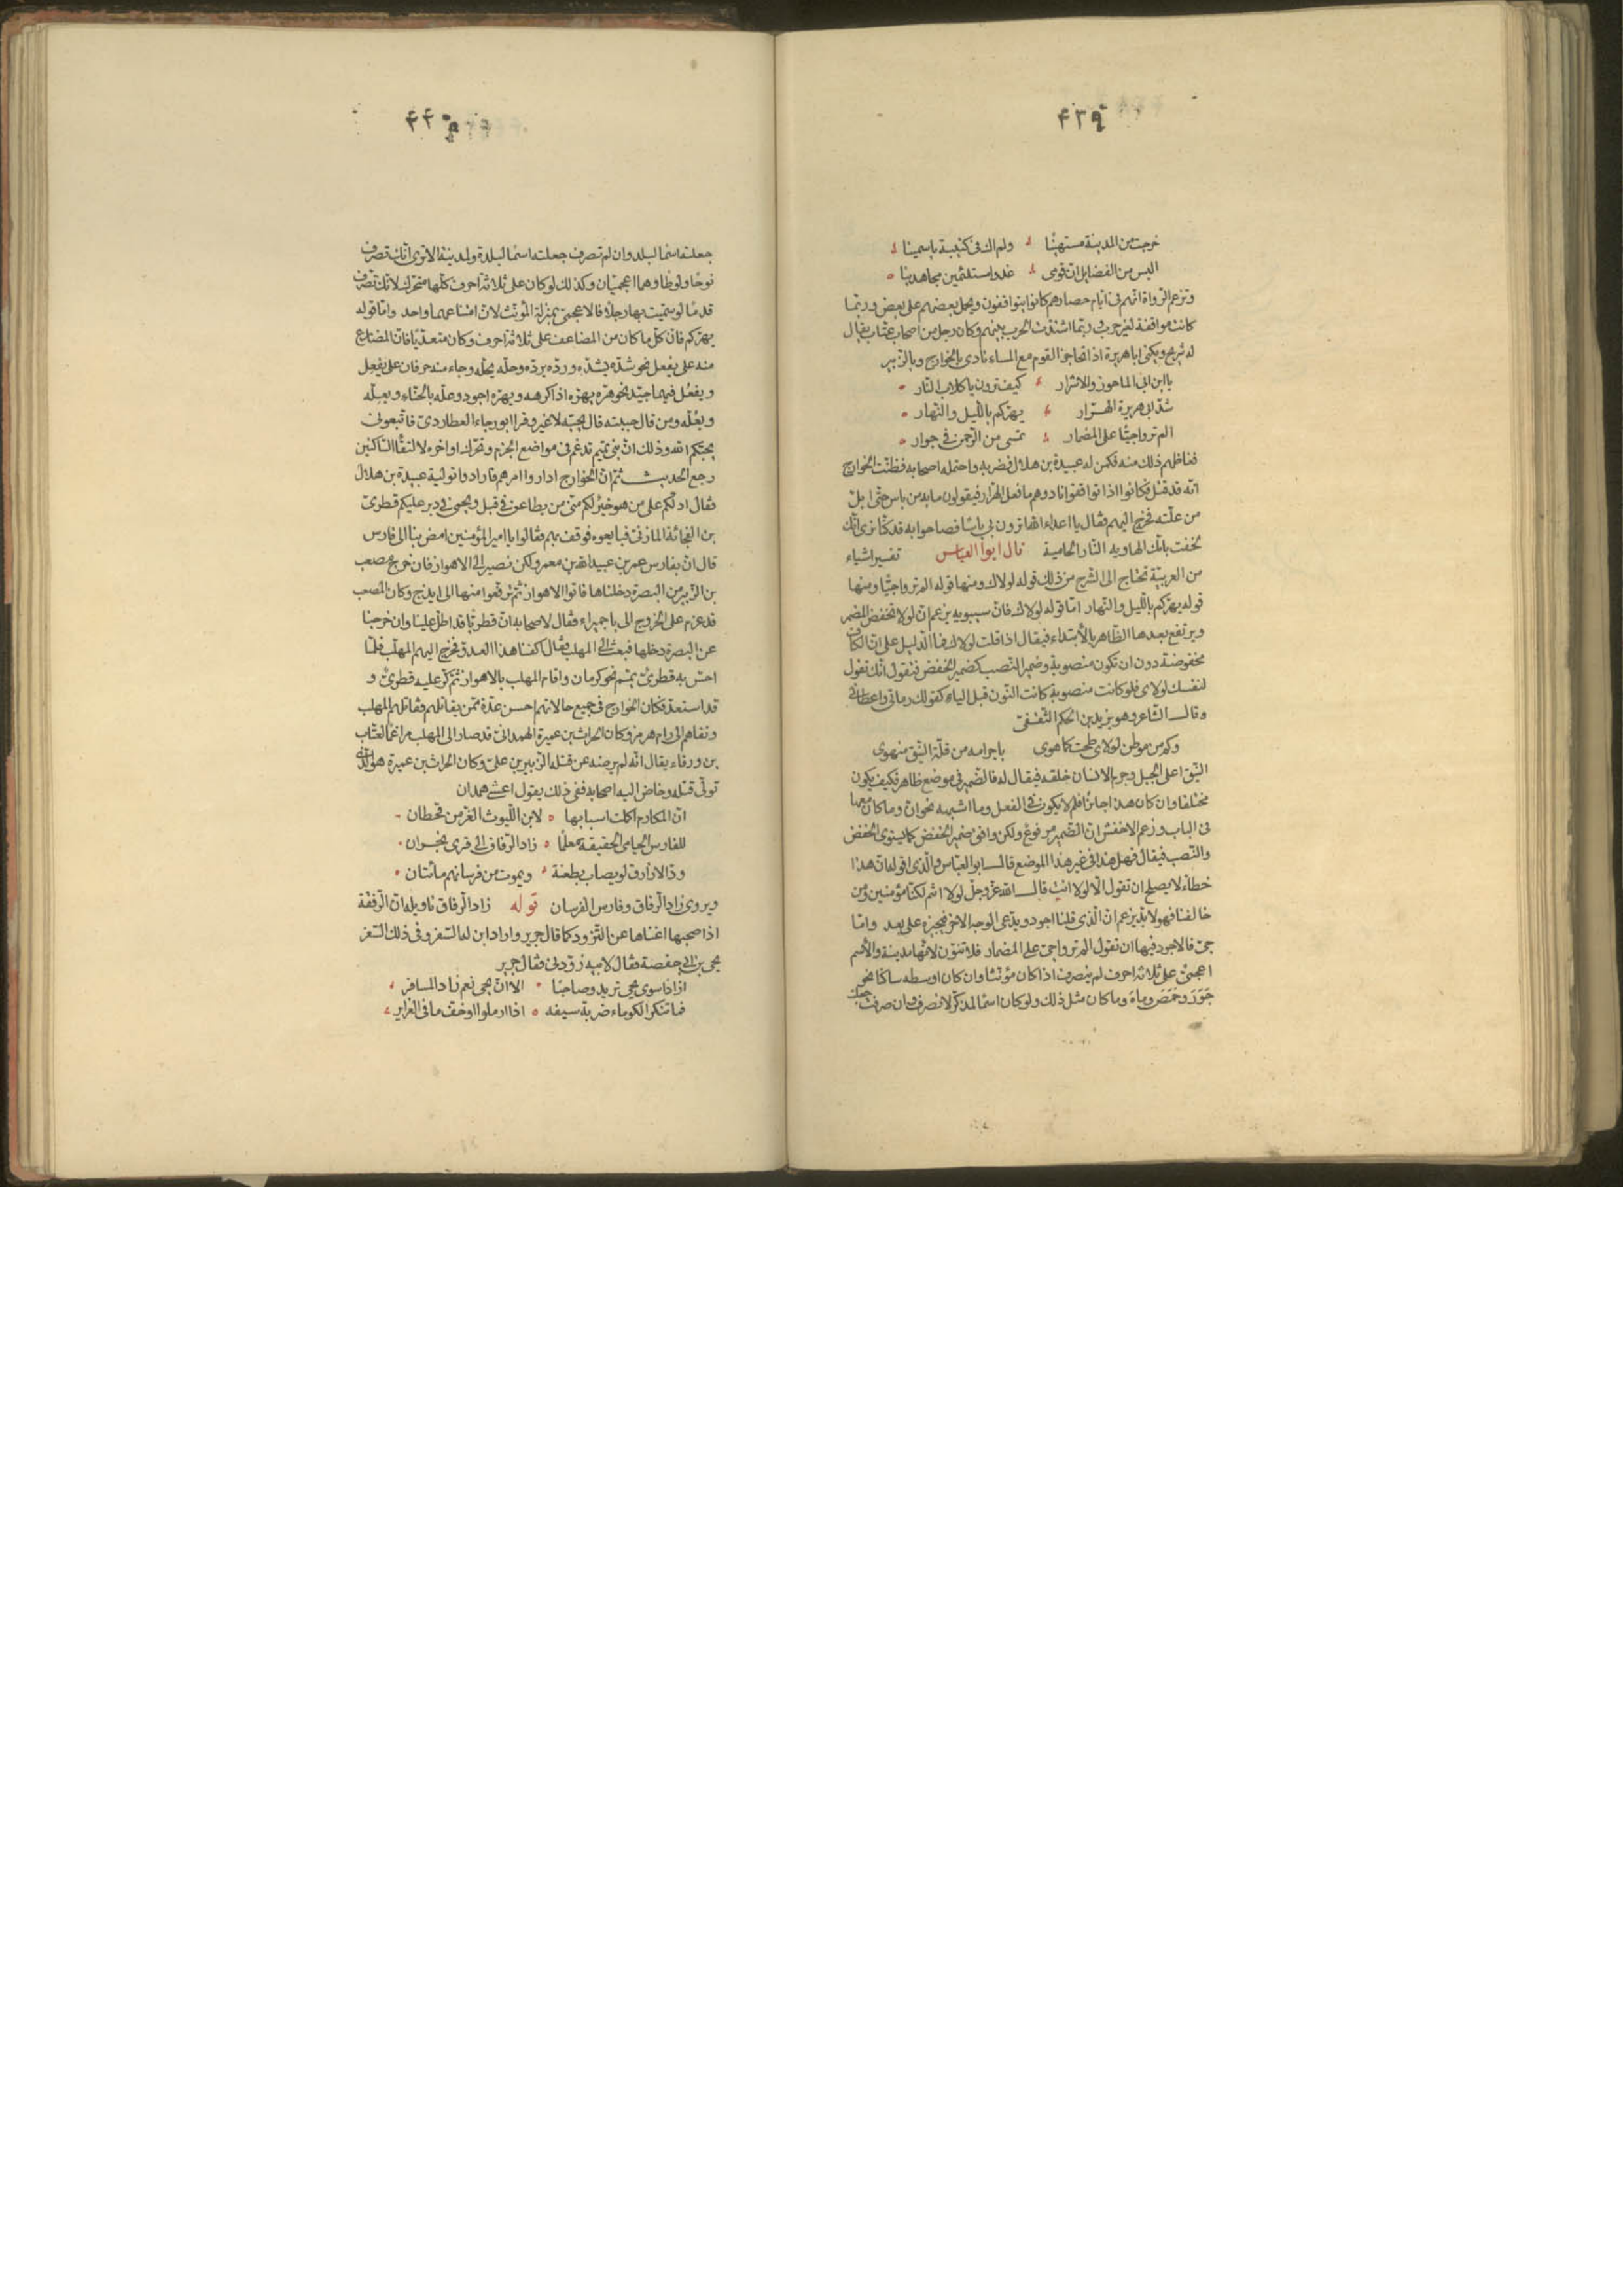 ۴۳۹
خرجت من المدينة مستهينا ولم اك فى كتيبة ياسمينا
اليس من الفضايل ان قومى غدوا مستلئمين مجاهدينا
وتزعم الرواة انهم فى ايام حصارهم كانوا يتواقفون ويحمل بعضهم على بعض وربما
كانت مواقفة لغير حرب وربما اشتدت الحرب بينهم وكان رجل من اصحاب عتاب يقال
له شريح ويكنى ابا هريرة اذا تحاجز القوم مع المساء نادى بالخوارج وبالزبير
يا ابن ابى الماحوز والاشرار كيف ترون يا كلاب النار
شد ابى هريرة الهرار يهركم بالليل والنهار
الم تروا جيّا على المضمار تمسى من الرحمن فى جوار
فغاظهم ذلك منه فكمن له عبيدة بن هلال فضربه واحتمله اصحابه فظنت الخوارج
انه قد قتل فكانوا اذا تواقفوا نادوهم ما فعل الهرار فيقولون ما به من باس حتى ابل
من علته فخرج اليهم فقال يا اعداء الله اترون بى باسًا فصاحوا به قد كنا نرى انك
لحقت بامك الهاوية النار الحامية قال ابو العباس تفسير اشياء
من العربية تحتاج الى الشرح من ذلك قوله لولاك ومنها قوله الم تروا جيّا ومنها
قوله يهركم بالليل والنهار اما قوله لولاك فان سيبويه يزعم ان لولا تخفض المضمر
ويرتفع بعدها الظاهر بالابتداء فيقال اذا قلت لولاك فما الدليل على ان الكاف
مخفوضة دون ان تكون منصوبة وضمير النصب كضمير الخفض فتقول انك تقول
لنفسك لولاى فلو كانت منصوبة كانت النون قبل الياء كقولك رمانى واعطانى
وقال الشاعر وهو يزيد بن الحكم الثقفى
وكم من موطن لولاى طحت كما هوى باجرامه من قلة النيق منهوى
النيق اعلى الجبل وجرم الانسان خلقه فيقال له فالضمير فى موضع ظاهر فكيف يكون
مختلفا وان كان هذا جائزا فلم لا يكون فى الفعل وما اشبهه نحو ان وما كان معها
فى الباب وزعم الاخفش ان الضمير مرفوع ولكن وافق ضمير الخفض كما يستوى الخفض
والنصب فيقال فهل هذا فى غير هذا الموضع قال ابو العباس والذى اقوله ان هذا
خطأ لا يصلح ان تقول الا لولا انت قال الله عز وجل لولا انتم لكنا مؤمنين ومن
خالفنا فهو لا بد يزعم ان الذى قلنا اجود ويدعى الوجه الاخر فيجيزه على بعد واما
جى فالاجود فيها ان تقول الم تروا جى على المضمار فلا تنون لانها مدينة والاسم
اعجمى على ثلاثة احرف لم ينصرف اذا كان مؤنثا وان كان اوسطه ساكنا نحو
جور وحمص وماه وما كان مثل ذلك ولو كان اسما لمذكر لانصرف وان صرفت جى
۴۴۰
جعلته اسما لبلد وان لم تصرف جعلته اسما لبلدة ولمدينة الا ترى انك تصرف
نوحًا ولوطًا وهما اعجميان وكذلك لو كان على ثلاثة احرف كلها متحرك لانك تصرف
قدمًا لو سميت بها رجلًا فالاعجمى بمنزلة المؤنث لان امتناعهما واحد واما قوله
يهركم فان كل ما كان من المضاعف على ثلاثة احرف وكان متعديا فان المضارع
منه على يفعل نحو شده يشده ورده يرده وحله يحله وجاء منه حرفان على يفعِل
ويفعُل فيهما جيد نحو هره يهره اذا كرهه ويهره اجود وعله بالحناء ويعله
ويعله ومن قال حببته قال يحبه لا غير وقرا ابو رجاء العطاردى فاتبعونى
يحبكم الله وذلك ان بنى تميم تدغم فى مواضع الجزم وتحرك اواخره لالتقاء الساكنين
رجع الحديث ثم ان الخوارج اداروا امرهم فارادوا تولية عبيدة بن هلال
فقال ادلكم على من هو خير لكم منى من يطاعن فى قبل ويحمى فى دبر عليكم قطرى
بن الفجاءة المازنى فبايعوه فوقف بهم فقالوا يا امير المؤمنين امض بنا الى فارس
قال ان بفارس عمر بن عبيد الله بن معمر ولكن نصير الى الاهواز فان خرج مصعب
بن الزبير من البصرة دخلناها فاتوا الاهواز ثم ترفعوا منها الى ايذج وكان المصعب
قد عزم على الخروج الى باجميراء فقال لاصحابه ان قطريا قد اطل علينا وان خرجنا
عن البصرة دخلها فبعث الى المهلب فقال اكفنا هذا العدو فخرج اليهم المهلب فلما
احس به قطرى يمم نحو كرمان واقام المهلب بالاهواز ثم كر عليه قطرى و
قد استعد فكان الخوارج فى جميع حالاتهم احسن عدة ممن يقاتلهم فقاتلهم المهلب
ونفاهم الى رام هرمز وكان الحراث بن عميرة الهمدانى قد صار الى المهلب مراغما لعتاب
بن ورقاء يقال انه لم يرضه عن قتله الزبير بن على وكان الحراث بن عميرة هو الذى
تولى قتله وخاض اليه اصحابه ففى ذلك يقول اعشى همدان
ان المكارم اكملت اسبابها لابن الليوث الغر من قحطان
للفارس الحامى الحقيقة معلمًا زاد الرفاق الى قرى نجران
ود الازارق لو يصاب بطعنة ويموت من فرسانهم مائتان
ويروى زاد الرفاق وفارس الفرسان قوله زاد الرفاق تاويله ان الرفقة
اذا صحبها اغناها عن التزود كما قال جرير واراد ابن له السفر وفى ذلك السفر
يحيى بن ابى حفصة فقال لابيه زودنى فقال جرير
ازادا سوى يحيى تريد وصاحبا الا ان يحيى نعم زاد المسافر
فما تنكر الكوماء ضربة سيفه اذا ارملوا او خف ما فى الغراير